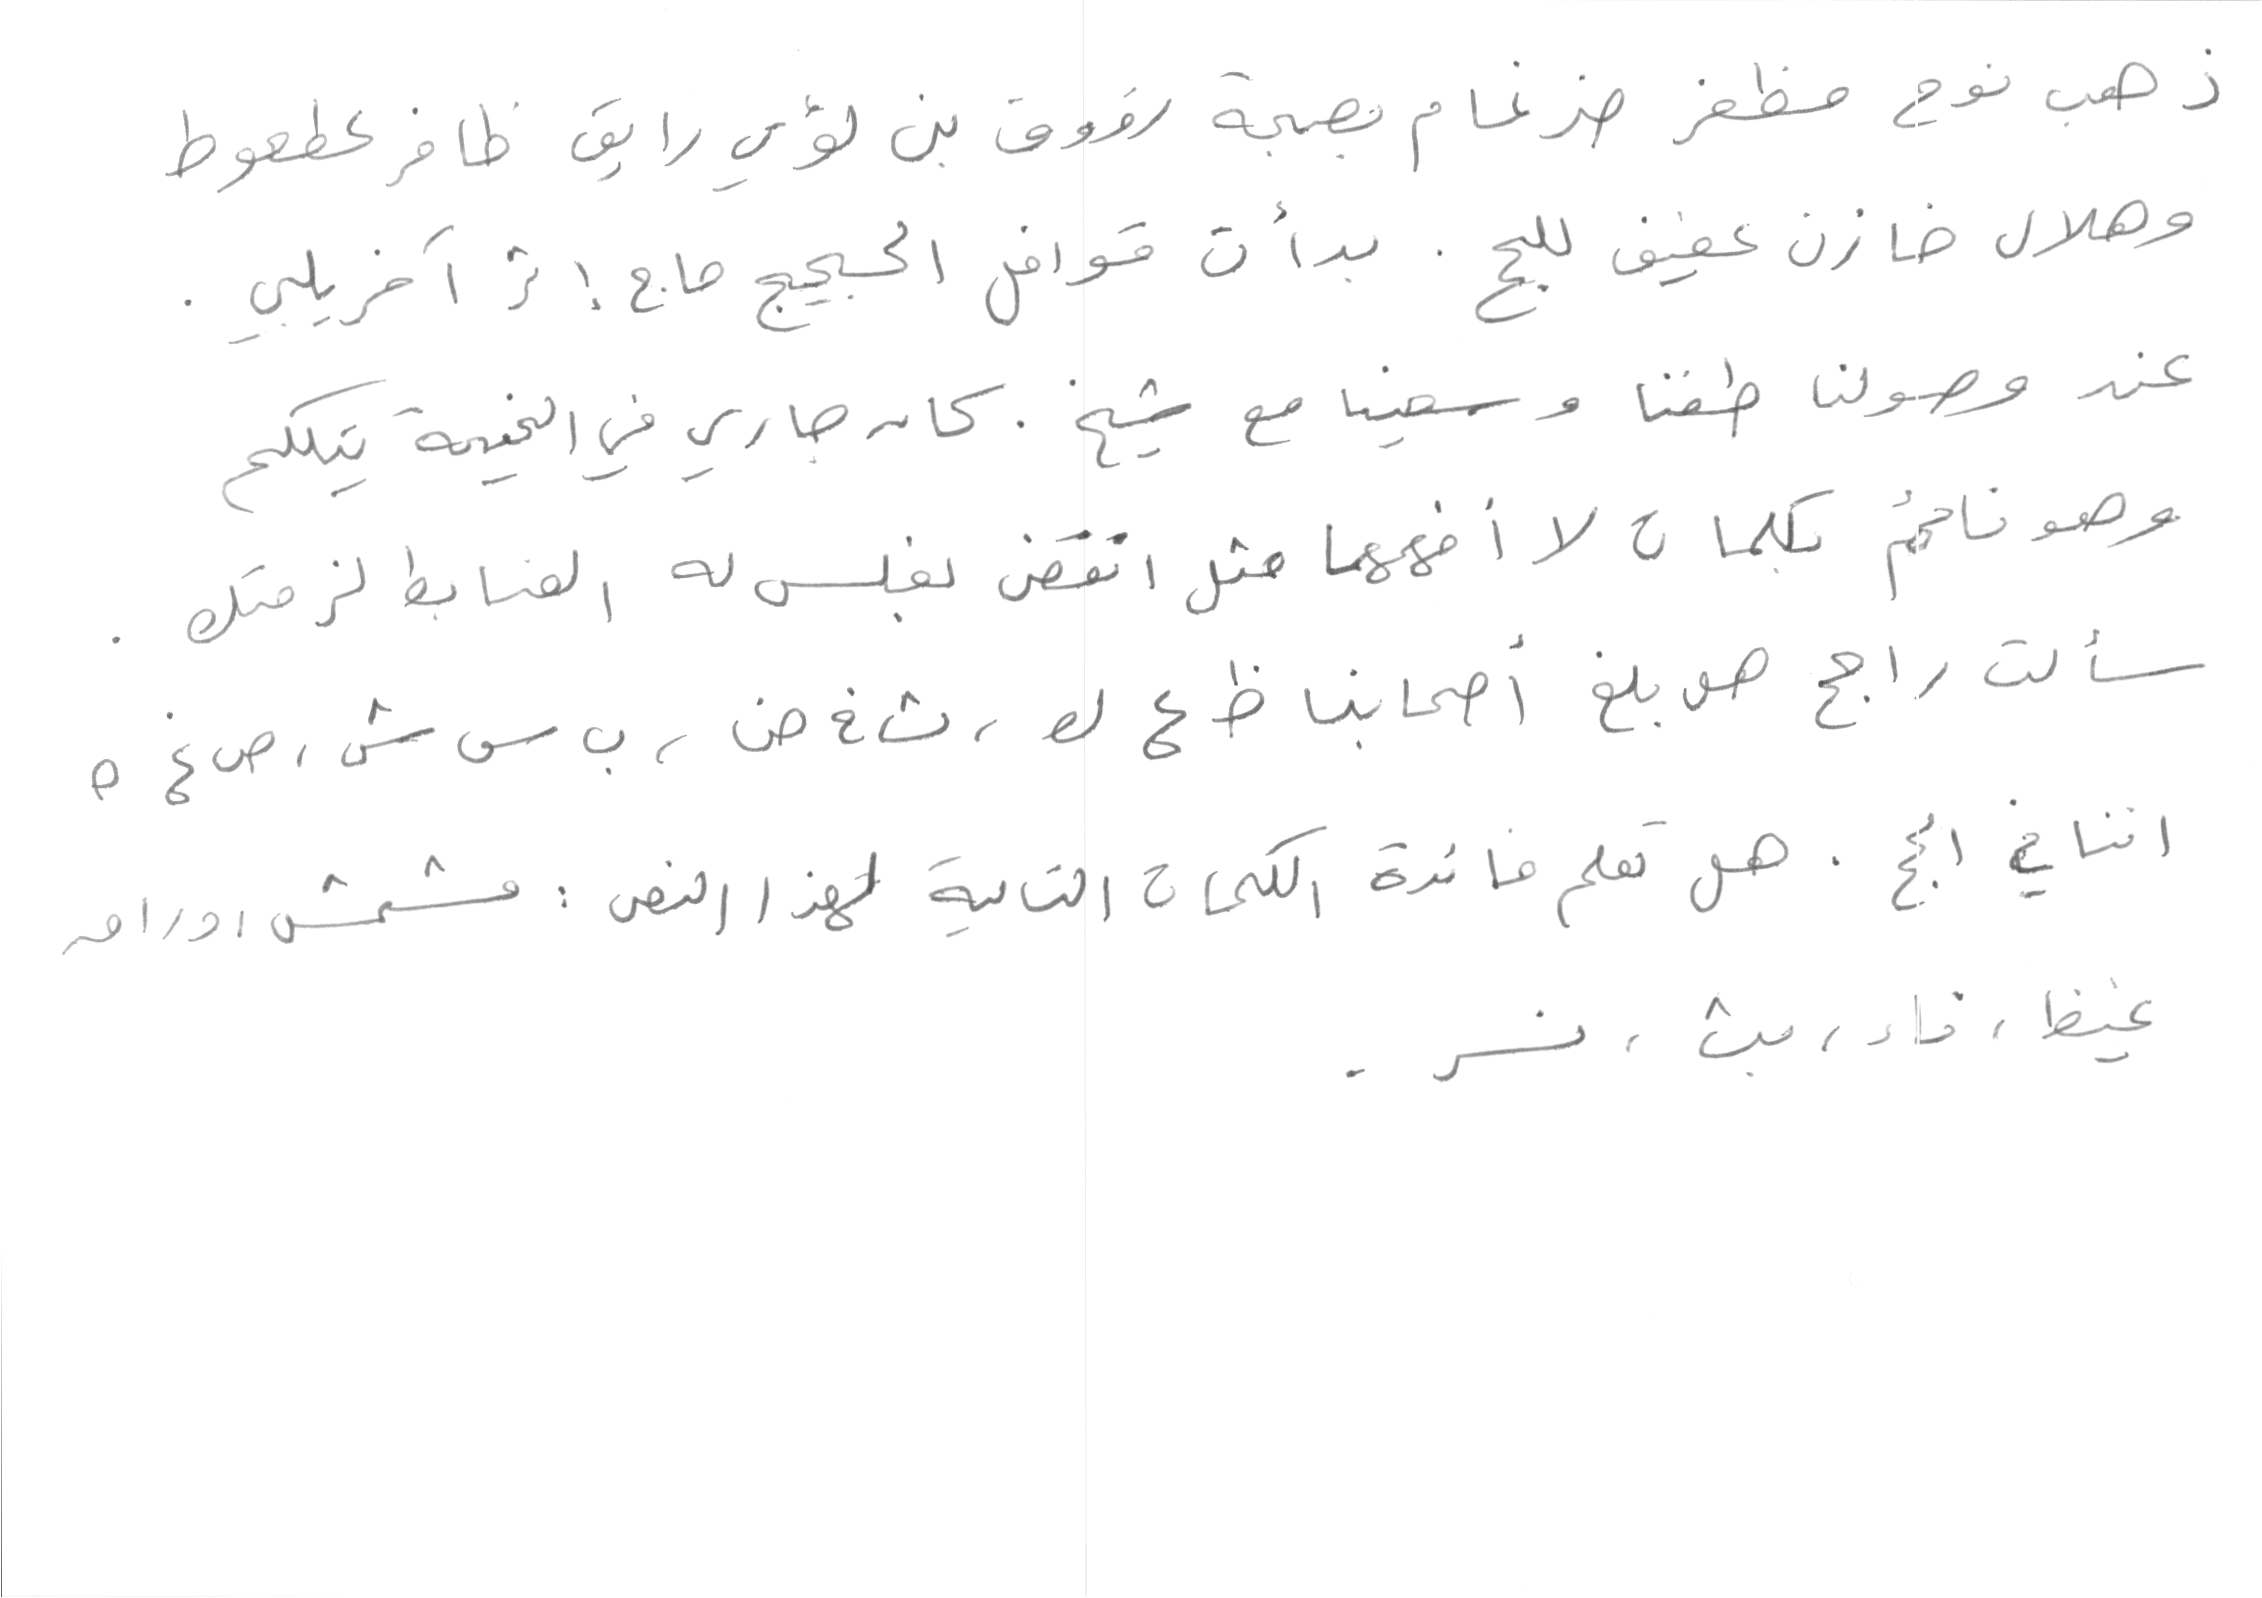 ذهب نوح مظفر ضرغام بصحبة رؤوف بن لؤي رايق ظافر عطعوط
وهلال خازن عفيف للحج . بدأت قوافل الحجيج حاج إثر آخر يلبي .
عند وصولنا طفنا وسعينا مع شيخ . كان جاري في الخيمة يتكلم
وهو نائم بكلمات لا أفهمها مثل انقض لغلس له الضابط لزمتك .
سألت راجح هو بلغ أصحابنا ظ ع ك ، ث خ ض ، ب س ش ، ص غ ه
اننا في الحج . هل تعلم فائدة الكلمات التالية لهذا النص : مشمش ، دراهم
غيظ ، ناد ، بث ، نسر .